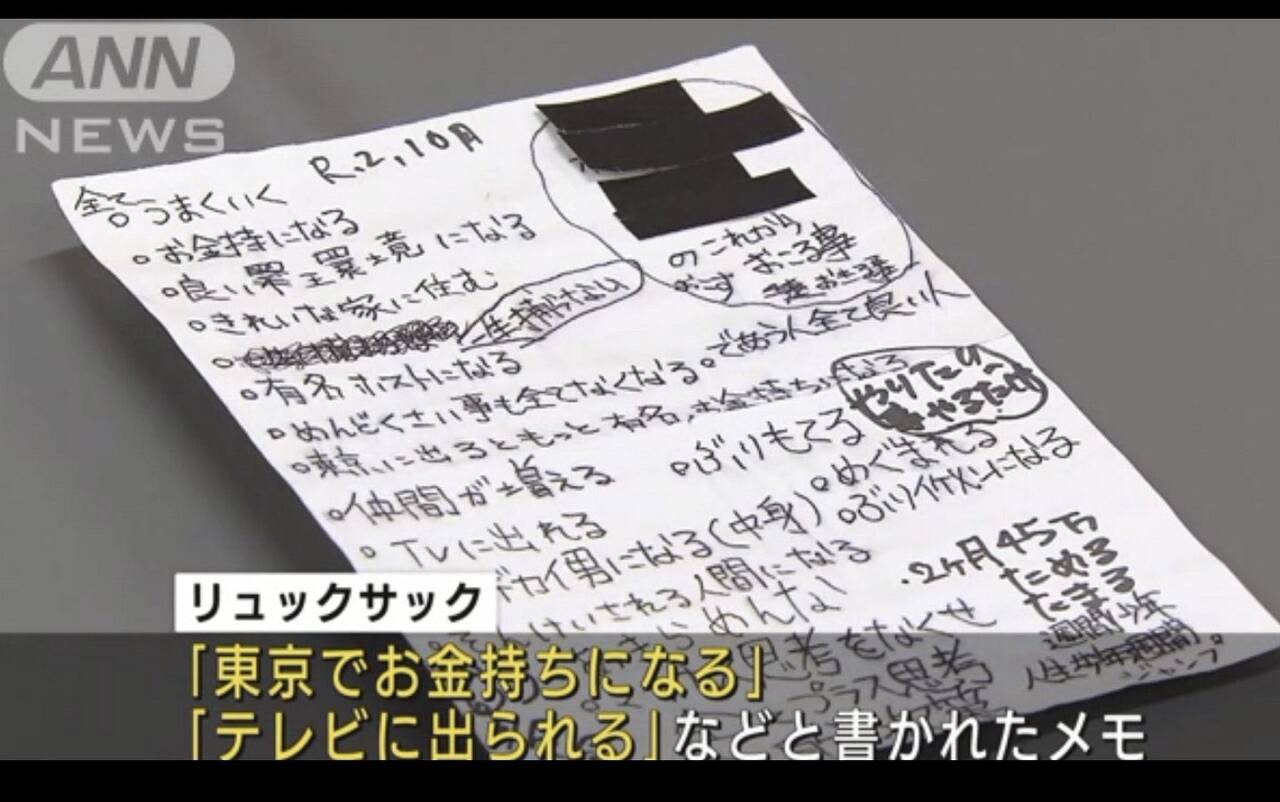 ANN
NEWS
R.2,10月
全てうまくいく
のこれから
おこる事
。お金持になる
。良い環境になる
。きれいな家に住む
生捕けない
。有名ホストになる
。めんどくさい事も全てなくなる
。であう人全て良い人
。東京に出るともっと有名、お金持ちになる
やりたい
やるだけ
。仲間が増える
。ぶりもてる
。めぐまれる
。TVに出れる
デカイ男になる(中身)
。ぶりイケメンになる
んけいされる人間になる
きらめんな
思考をなくせ
プラス思考
.2ヶ月45万
ためる
たまる
週間少年
人生
ジャンプ
リュックサック
「東京でお金持ちになる」
「テレビに出られる」などと書かれたメモ